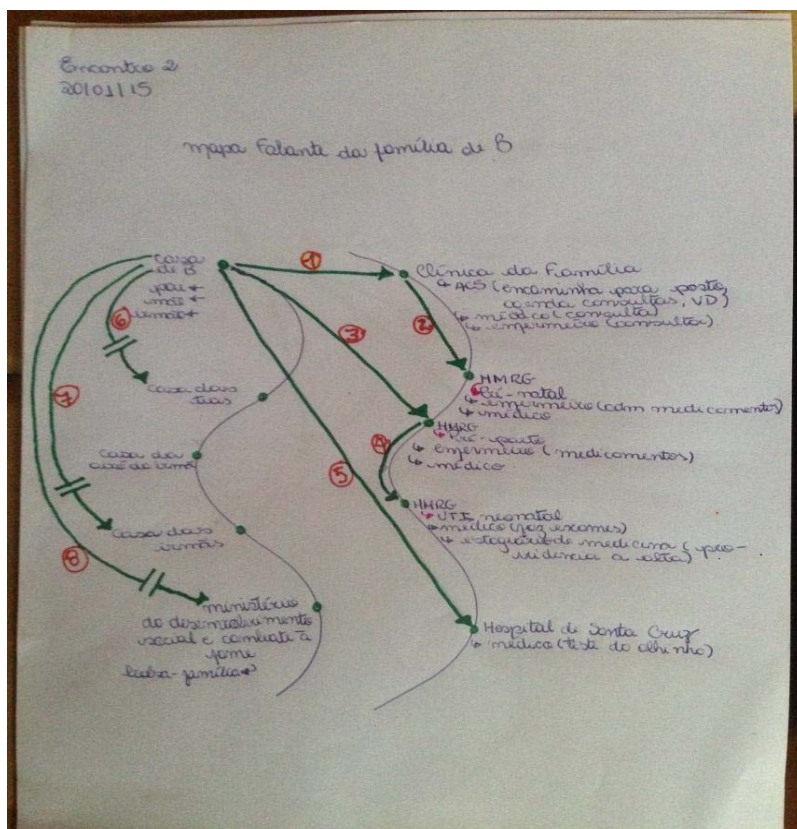 Encontro 2
20/01/15
mapa Falante da família de B
casa
de B
pai
irmã
irmão
①
②
③
④
⑤
⑥
⑦
⑧
casa das
tias
casa da
avó da irmã
casa das
irmãs
ministério
do desenvolvimento
social e combate à
fome
bolsa-família
Clínica da Família
ACS (encaminha para posto,
agenda consultas, VD)
médico (consulta)
enfermeiro (consulta)
HMRG
Pré-natal
enfermeiro (adm medicamentos)
médico
HMRG
Pré-parto
enfermeiro (medicamentos)
médico
HMRG
UTI neonatal
médico (faz exames)
estagiário de medicina (pro-
videncia a alta)
Hospital de Santa Cruz
médico (teste do olhinho)